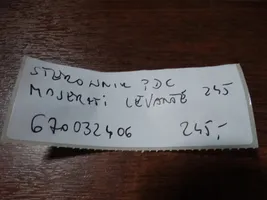 STEROWNIK PDC
MASERATI LEVANTE 245
670032406 245,-